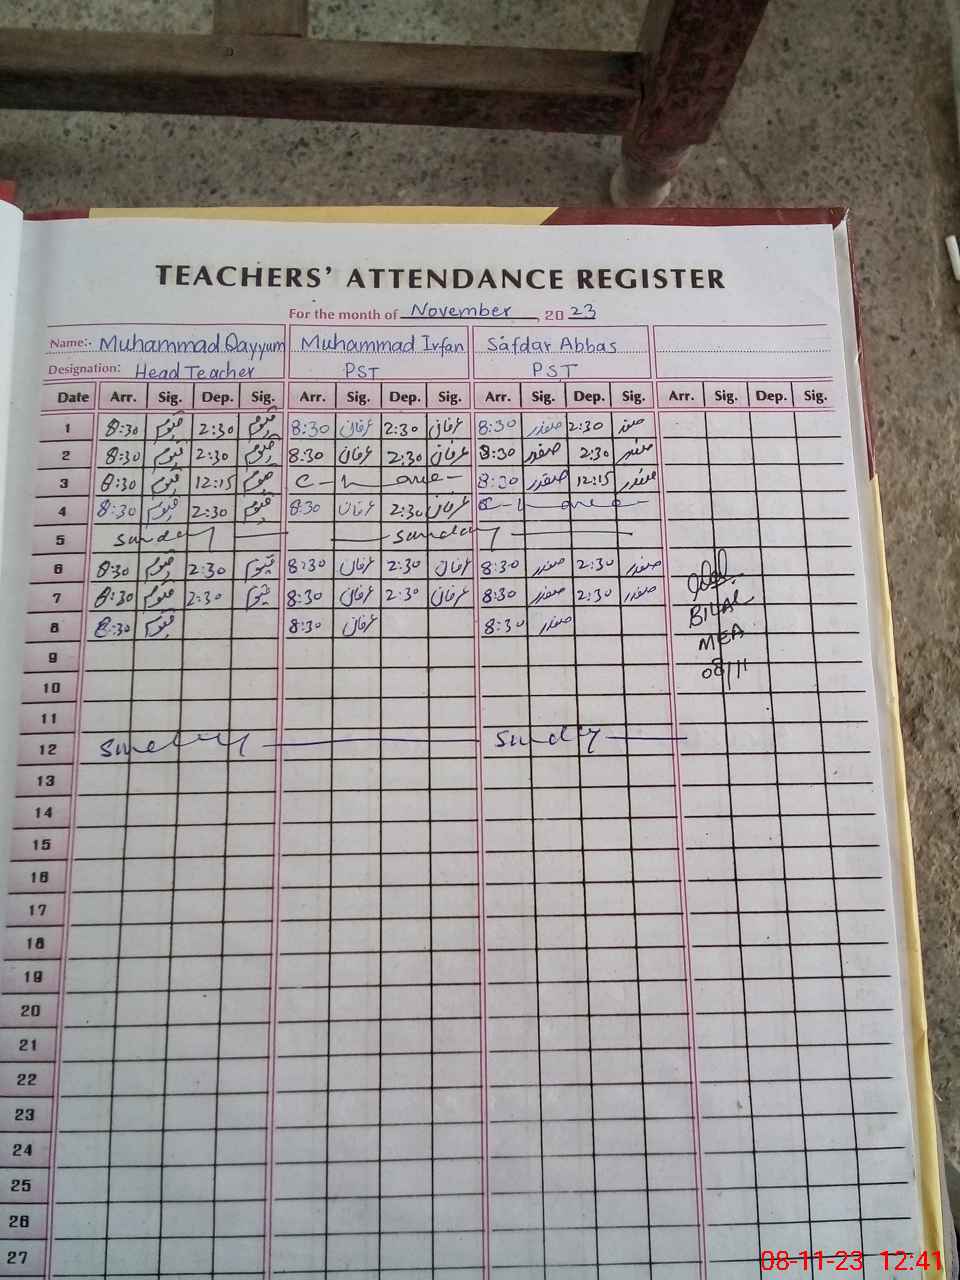 TEACHERS' ATTENDANCE REGISTER
For the month of November, 2023
Name:- Muhammad Qayyum Muhammad Irfan Safdar Abbas
Designation: Head Teacher PST PST
Date Arr. Sig. Dep. Sig. Arr. Sig. Dep. Sig. Arr. Sig. Dep. Sig. Arr. Sig. Dep. Sig.
1 8:30 قیوم 2:30 قیوم 8:30 عرفان 2:30 عرفان 8:30 صفدر 2:30 صفدر
2 8:30 قیوم 2:30 قیوم 8:30 عرفان 2:30 عرفان 8:30 صفدر 2:30 صفدر
3 8:30 قیوم 12:15 قیوم C-L 8:30 صفدر 12:15 صفدر
4 8:30 قیوم 2:30 قیوم 8:30 عرفان 2:30 عرفان C-L
5 Sunday Sunday
6 8:30 قیوم 2:30 قیوم 8:30 عرفان 2:30 عرفان 8:30 صفدر 2:30 صفدر
7 8:30 قیوم 2:30 قیوم 8:30 عرفان 2:30 عرفان 8:30 صفدر 2:30 صفدر
BILAL
8 8:30 قیوم 8:30 عرفان 8:30 صفدر
MEA
9
08/11
10
11
12 Sunday Sunday
13
14
15
16
17
18
19
20
21
22
23
24
25
26
27
08-11-23 12:41